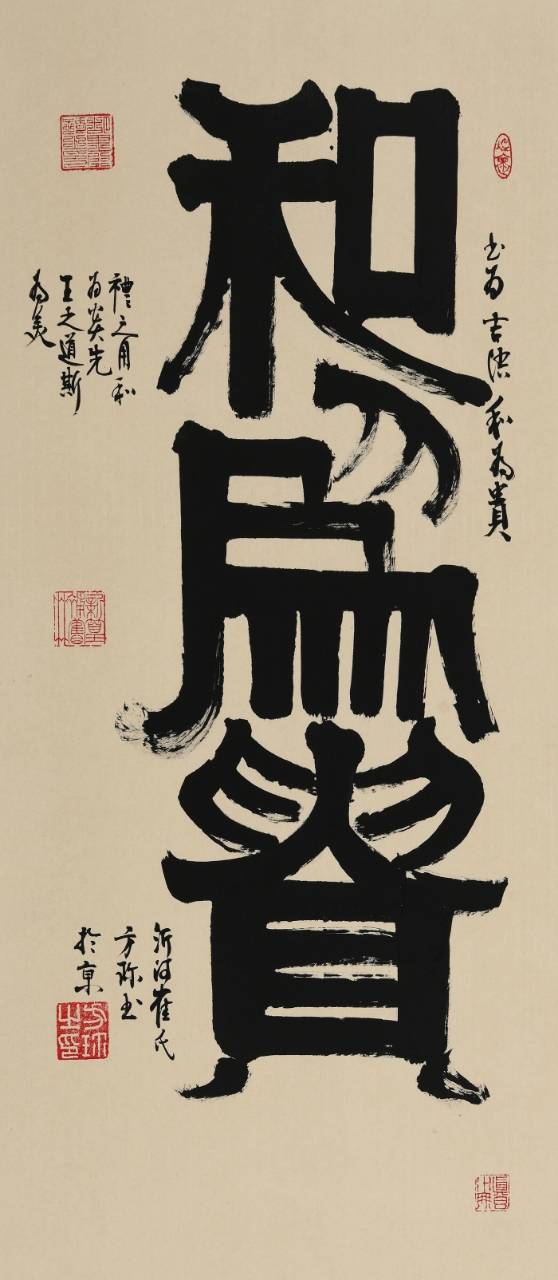 書為吉語和為貴
和為貴
禮之用和
為貴先
王之道斯
為美
沂河崔氏
方书
於京